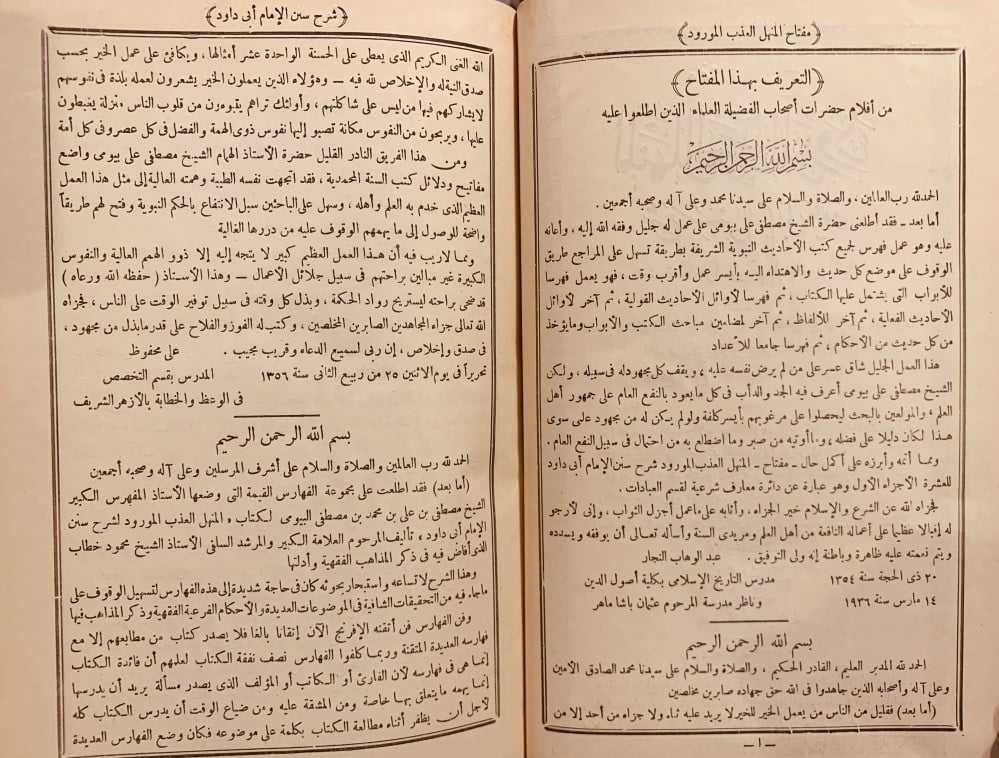 ﴿مفتاح المنهل العذب المورود﴾
﴿التعريف بهذا المفتاح﴾
من أقلام حضرات أصحاب الفضيلة العلماء الذين اطلعوا عليه
بسم الله الرحمن الرحيم
الحمد لله رب العالمين ، والصلاة والسلام على سيدنا محمد وعلى آله وصحبه أجمعين .
أما بعد ــ فقد أطلعنى حضرة الشيخ مصطفى على بيومى على عمل له جليل وفقه الله إليه ، وأعانه
عليه وهو عمل فهرس لجميع كتب الأحاديث النبوية الشريفة بطريقة تسهل على المراجع طريق
الوقوف على موضع كل حديث والاهتداء اليه بأيسر عمل وأقرب وقت ، فهو يعمل فهرسا
للأبواب التى يشتمل عليها الكتاب ، ثم فهرسا لأوائل الأحاديث القولية ، ثم آخر لأوائل
الأحاديث الفعلية ، ثم آخر للألفاظ ، ثم آخر لمضامين مباحث الكتب والأبواب ومايؤخذ
من كل حديث من الأحكام ، ثم فهرسا جامعا للأعداد
هذا العمل الجليل شاق عسر على من لم يرض نفسه عليه ، ويقف كل مجهود له فى سبيله ، ولكن
الشيخ مصطفى على بيومى أعرف فيه الجد والدأب فى كل ما يعود بالنفع العام على جمهور أهل
العلم ، والمولعين بالبحث ليحصلوا على مرغوبهم بأيسر كلفة ولو لم يكن له من مجهود على سوى
هذا لكان دليلا على فضله ، وما أوتيه من صبر وما اضطلع به من احتمال فى سبيل النفع العام .
ومما أتمه وأبرزه على أكمل حال ــ مفتاح ــ المنهل العذب المورود شرح سنن الإمام أبى داود
للعشرة الأجزاء الأول وهو عبارة عن دائرة معارف شرعية لقسم العبادات .
فجزاه الله عن الشرع والإسلام خير الجزاء ، وأثابه على ماعمل أجزل الثواب ، وإنى لأرجو
له إقبالا عظيما على أعماله النافعة من أهل العلم ومريدى السنة وأسأله تعالى أن يوفقه ويسدده
ويتم نعمته عليه ظاهرة وباطنة إنه ولى التوفيق . عبد الوهاب النجار
٢٠ ذى الحجة سنة ١٣٥٤ مدرس التاريخ الإسلامى بكلية أصول الدين
١٤ مارس سنة ١٩٣٦ وناظر مدرسة المرحوم عثمان باشا ماهر
بسم الله الرحمن الرحيم
الحمد لله المدبر العليم ، القادر الحكيم ، والصلاة والسلام على سيدنا محمد الصادق الأمين
وعلى آله وأصحابه الذين جاهدوا فى الله حق جهاده صابرين مخلصين
(أما بعد) فقليل من الناس من يعمل الخير للخير لا يريد عليه ثناء ولا جزاء من أحد إلا من
ــ ١ ــ
﴿شرح سنن الإمام أبى داود﴾
الله الغنى الكريم الذى يعطى على الحسنة الواحدة عشر أمثالها ، ويكافئ على عمل الخير بحسب
صدق النية له والإخلاص لله فيه ــ وهؤلاء الذين يعملون الخير يشعرون لعمله بلذة فى نفوسهم
لا يشاركهم فيها من ليس على شاكلتهم ، وأولئك تراهم يتبوءون من قلوب الناس منزلة يغبطون
عليها ، ويربحون من النفوس مكانة تصبو إليها نفوس ذوى الهمة والفضل فى كل عصر وفى كل أمة
ومن هذا الفريق النادر القليل حضرة الأستاذ الهمام الشيخ مصطفى على بيومى واضع
مفاتيح ودلائل كتب السنة المحمدية ، فقد اتجهت نفسه الطيبة وهمته العالية إلى مثل هذا العمل
العظيم الذى خدم به العلم وأهله ، وسهل على الباحثين سبل الانتفاع بالحكم النبوية وفتح لهم طريقاً
واضحة للوصول إلى ما يهمهم الوقوف عليه من دررها الغالية
ومما لاريب فيه أن هذا العمل العظيم كبير لا يتجه إليه إلا ذوو الهمم العالية والنفوس
الكبيرة غير مبالين براحتهم فى سبيل جلائل الأعمال ــ وهذا الأستاذ (حفظه الله ورعاه)
قد ضحى براحته ليستريح رواد الحكمة ، وبذل كل وقته فى سبيل توفير الوقت على الناس ، فجزاه
الله تعالى جزاء المجاهدين الصابرين المخلصين ، وكتب له الفوز والفلاح على قدر مابذل من مجهود ،
فى صدق وإخلاص ، إن ربى لسميع الدعاء وقريب مجيب . على محفوظ
تحريراً فى يوم الاثنين ٢٥ من ربيع الثانى سنة ١٣٥٦ المدرس بقسم التخصص
فى الوعظ والخطابة بالأزهر الشريف
بسم الله الرحمن الرحيم
الحمد لله رب العالمين والصلاة والسلام على أشرف المرسلين وعلى آله وصحبه أجمعين
(أما بعد) فقد اطلعت على مجموعة الفهارس القيمة التى وضعها الأستاذ المفهرس الكبير
الشيخ مصطفى بن على بن محمد بن مصطفى البيومى لكتاب . المنهل العذب المورود لشرح سنن
الإمام أبى داود ، تأليف المرحوم العلامة الكبير والمرشد السلفى الأستاذ الشيخ محمود خطاب
الذى أفاض فيه فى ذكر المذاهب الفقهية وأدلتها
وهذا الشرح لاتساعه واستبحار بحوثه كان فى حاجة شديدة إلى هذه الفهارس لتسهيل الوقوف على
ما جاء فيه من التحقيقات الشافية فى الموضوعات العديدة والأحكام الفرعية الفقهية وذكر المذاهب فيها
وفن الفهارس فن أتقنه الإفرنج الآن إتقانا بالغا فلا يصدر كتاب من مطابعهم إلا مع
فهارسه العديدة المتقنة وربما كلفوا الفهارس نصف نفقة الكتاب لعلمهم أن فائدة الكتاب
إنما هى فى فهارسه لأن القارئ أو الكاتب أو المؤلف الذى يصدر مسألة يريد أن يدرسها
إنما يهمه ما يتعلق بها خاصة ومن المشقة عليه ومن ضياع الوقت أن يدرس الكتاب كله
لأجل أن يظفر أثناء مطالعة الكتاب بكلمة على موضوعه فكان وضع الفهارس العديدة